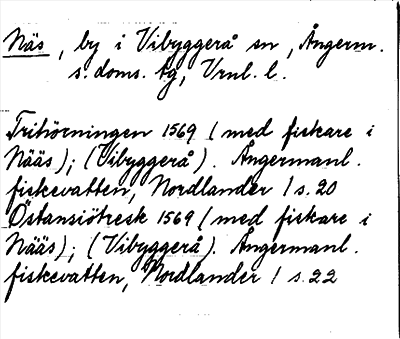 Näs, by i Vibyggerå sn, Ångerm.
s. doms. tg, Vrnl. l.
Trihörningen 1569 (med fiskare i
Nääs); (Vibyggerå). Ångermanl.
fiskevatten, Nordlander / s. 20
Östansiötresk 1569 (med fiskare i
Nääs); (Vibyggerå). Ångermanl.
fiskevatten, Nordlander / s. 22